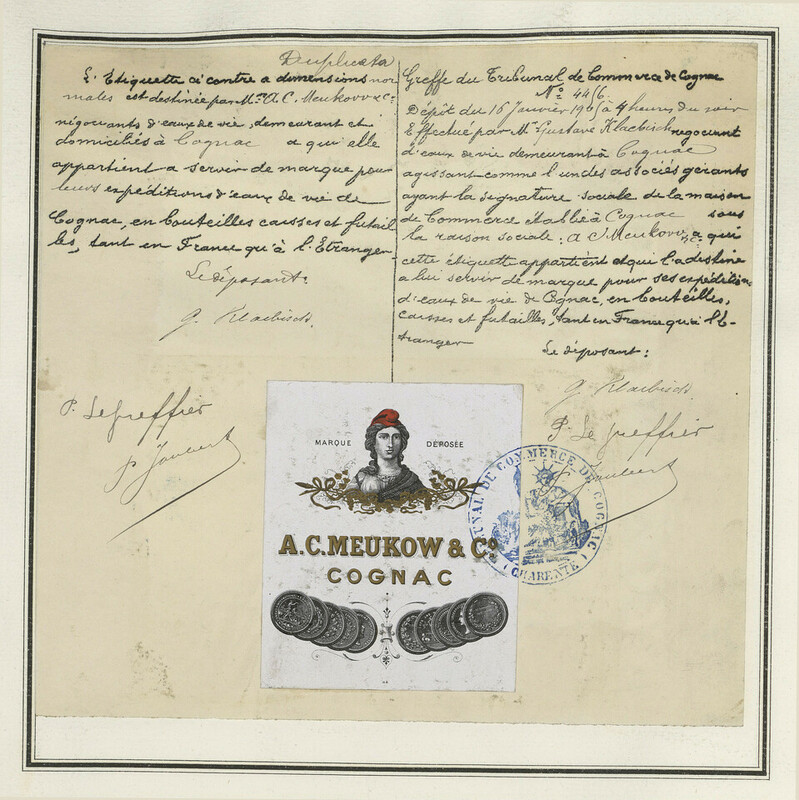 Duplicata
L'Etiquette ci contre a dimensions nor
males est destinée par Mrs A. C. Meukow & Cie
négociants d'eaux de vie, demeurant et
domiciliés à Cognac a qui elle
appartient a servir de marque pour
leurs expéditions d'eaux de vie de
Cognac, en bouteilles caisses et futail
les, tant en France qu'à l'Etranger.
Le déposant:
G. Klaebisch.
P. Le greffier
P. Joubert
Greffe du Tribunal de Commerce de Cognac
No 4456.
Dépôt du 16 Janvier 1905 à 4 heures du soir
Effectué par Mr Gustave Klaebisch négociant
d'eaux de vie demeurant à Cognac
agissant comme l'un des associés gérants
ayant la signature sociale de la maison
de Commerce établie à Cognac sous
la raison sociale: A C Meukow & Cie a qui
cette étiquette appartient et qui l'a destiné
a lui servir de marque pour ses expédition
d'eaux de vie de Cognac, en bouteilles,
caisses et futailles, tant en France qu'à l'E-
tranger
Le déposant:
G. Klaebisch
P. Le greffier
Joubert
MARQUE DÉPOSÉE
A.C.MEUKOW & Co
COGNAC
TRIBUNAL DE COMMERCE DE COGNAC
(CHARENTE)